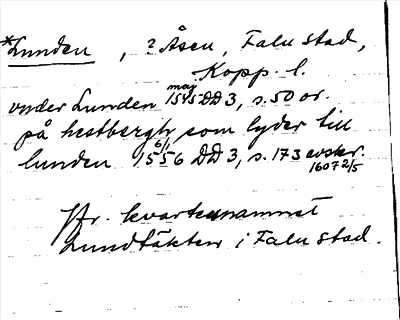 *Lunden, ? Åsen, Falu stad,
Kopp. l.
under Lunden maj 1545 DD 3, s. 50 or.
på hestbergh som lyder till
lunden 6/1 1556 DD 3, s. 173 avskr. 1607 2/5
Jfr. kvartersnamnet
Lundtäkten i Falu stad.